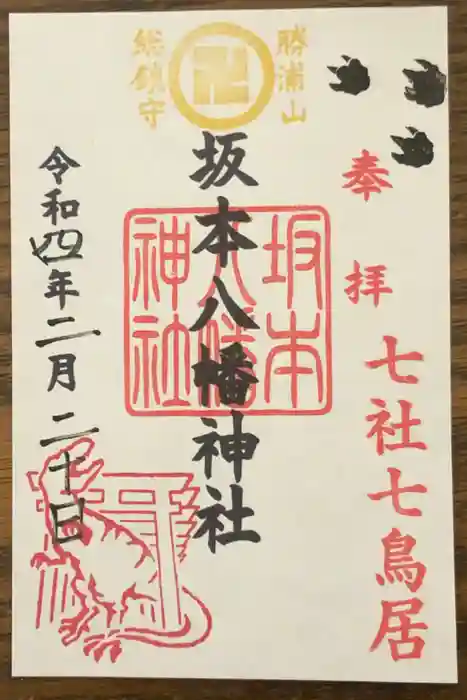 勝浦山
総鎮守
卍
奉拝
七社七鳥居
坂本八幡神社
坂本
八幡
神社
令和四年二月二十日